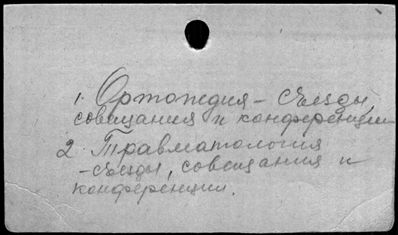 1. Ортопедия – съезды,
совещания и конференции
2. Травматология
– съезды, совещания и
конференции.